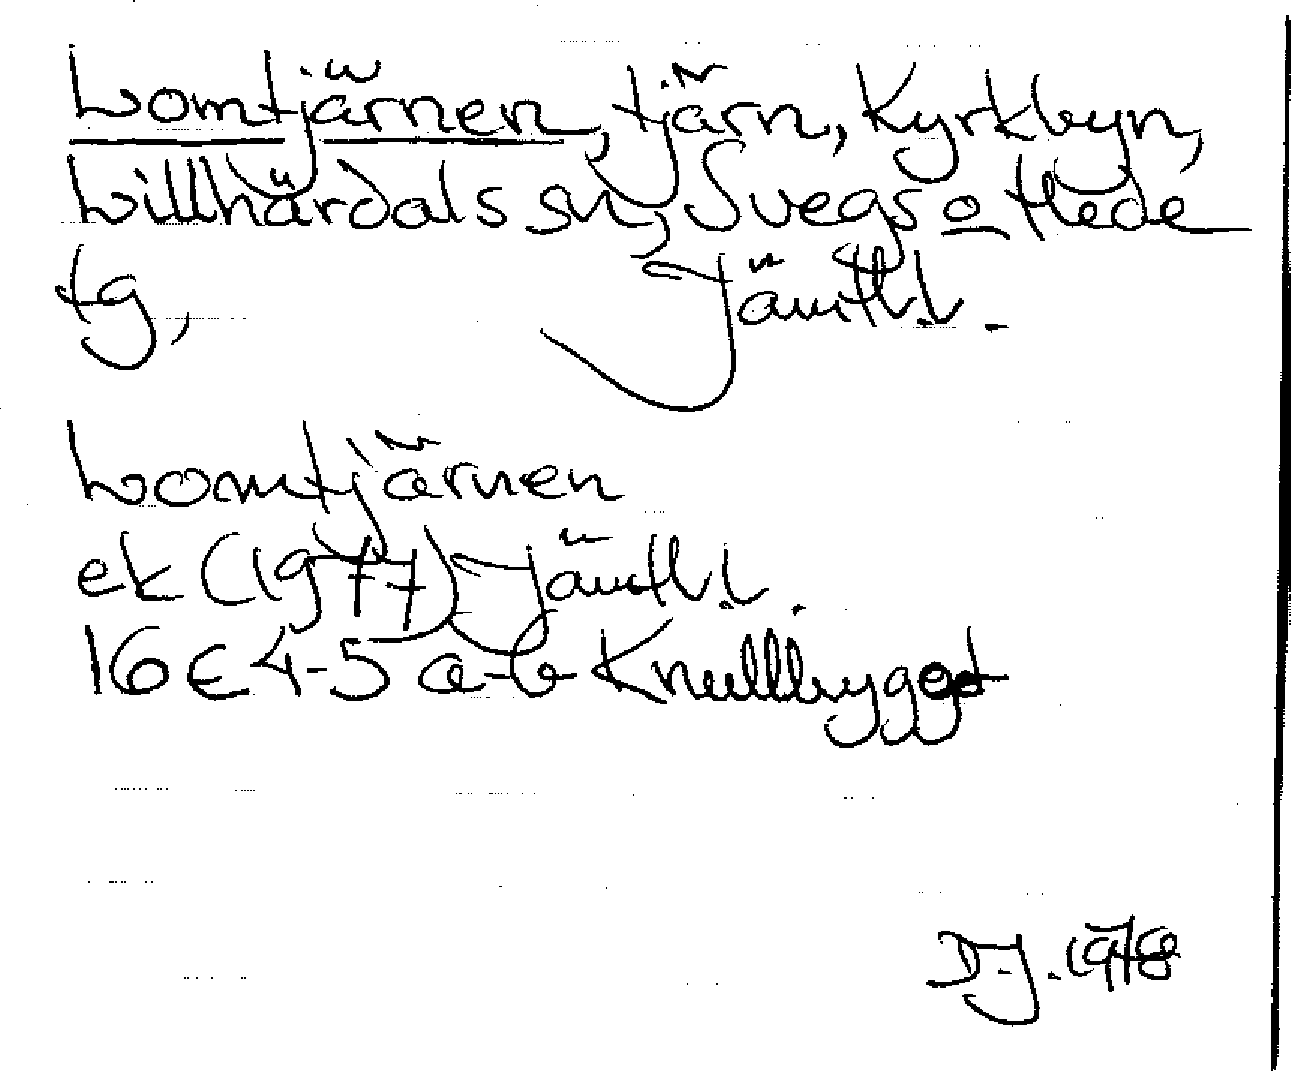 Lomtjärnen, tjärn, Kyrkbyn,
Lillhärdals sn, Svegs o Hede
tg, Jämtl.l.
Lomtjärnen
ek (1977) Jämtl.l.
16E 4-5 a-b Knullbygget
D-J. 1978